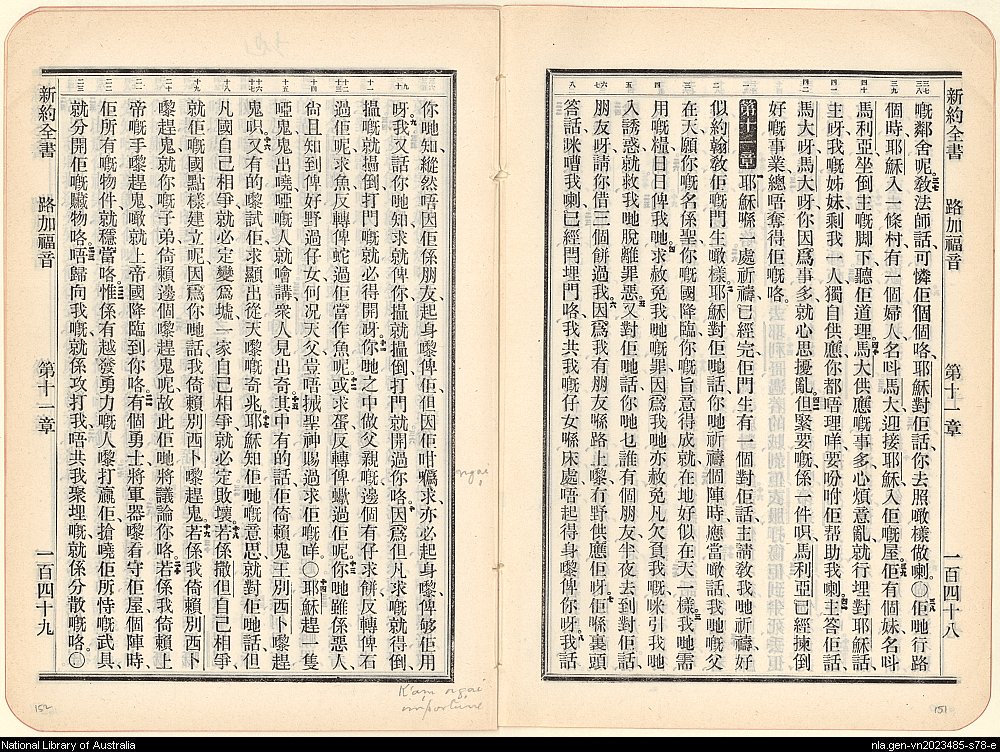 新約全書 路加福音 第十一章 一百四十八
嘅鄰舍呢教法師話可憐佢個個咯耶穌對佢話你去照噉樣做喇〇佢哋行路
個時耶穌入一條村有一個婦人名呌馬大迎接耶穌入佢嘅屋佢有個妹名呌
馬利亞坐倒主嘅脚下聽佢道理馬大供應嘅事多心煩意亂就行埋對耶穌話
主呀我嘅姊妹剩我一人獨自供應你都唔理咩要吩咐佢帮助我喇主答佢話
馬大呀馬大呀你因爲事多就心思擾亂但緊要嘅係一件呮馬利亞已經揀倒
好嘅事業總唔奪得佢嘅咯
第十一章 耶穌喺一處祈禱已經完佢門生有一個對佢話主請教我哋祈禱好
似約翰教佢嘅門生噉樣耶穌對佢哋話你哋祈禱個陣時應當噉話我哋嘅父
在天願你嘅名係聖你嘅國降臨你嘅旨意得成就在地好似在天一樣我哋需
用嘅糧日日俾我哋求赦免我哋嘅罪因爲我哋亦赦免凡欠負我嘅咪引我哋
入誘惑就救我哋脫離罪惡又對佢哋話你哋乜誰有個朋友半夜去到對佢話
朋友呀請你借三個餅過我因爲我有朋友喺路上嚟冇野供應佢呀佢喺裏頭
答話咪嘈我喇已經閂埋門咯我共我嘅仔女喺床處唔起得身嚟俾你呀我話
151
你哋知縱然唔因佢係朋友起身嚟俾佢但因佢咁囑求亦必起身嚟俾够佢用
呀我又話你哋知求就俾你搵就搵倒打門就開過你咯因爲但凡求嘅就得倒
搵嘅就搵倒打門嘅就必得開呀你哋之中做父親嘅邊個有仔求餅反轉俾石
過佢呢求魚反轉俾蛇過佢當作魚呢或求蛋反轉俾蠍過佢呢你哋雖係惡人
尙且知到俾好野過仔女何况天父豈唔㨢聖神賜過求佢嘅咩〇耶穌趕一隻
啞鬼鬼出嘵啞嘅人就噲講衆人見出奇其中有的話佢倚賴鬼王別西卜嚟趕
鬼呮又有的嚟試佢求顯出從天嚟嘅奇兆耶穌知佢哋嘅意思就對佢哋話但
凡國自己相爭就必定變爲墟一家自己相爭就必定敗壞若係撒但自己相爭
就佢嘅國點樣建立呢因爲你哋話我倚賴別西卜嚟趕鬼若係我倚賴別西卜
嚟趕鬼就你嘅子弟倚賴邊個嚟趕鬼呢故此佢哋將議論你咯若係我倚賴上
帝嘅手嚟趕鬼噉就上帝國降臨到你咯有個勇士將軍器嚟看守佢屋個陣時
佢所有嘅物件就穩當咯惟係有越發勇力嘅人嚟打贏佢搶嘵佢所恃嘅武具
就分開佢嘅贓物咯唔歸向我嘅就係攻打我唔共我聚埋嘅就係分散嘅咯〇
新約全書 路加福音 第十一章 一百四十九
ngai
K'am ngai
importune
152
National Library of Australia
nla.gen-vn2023485-s78-e